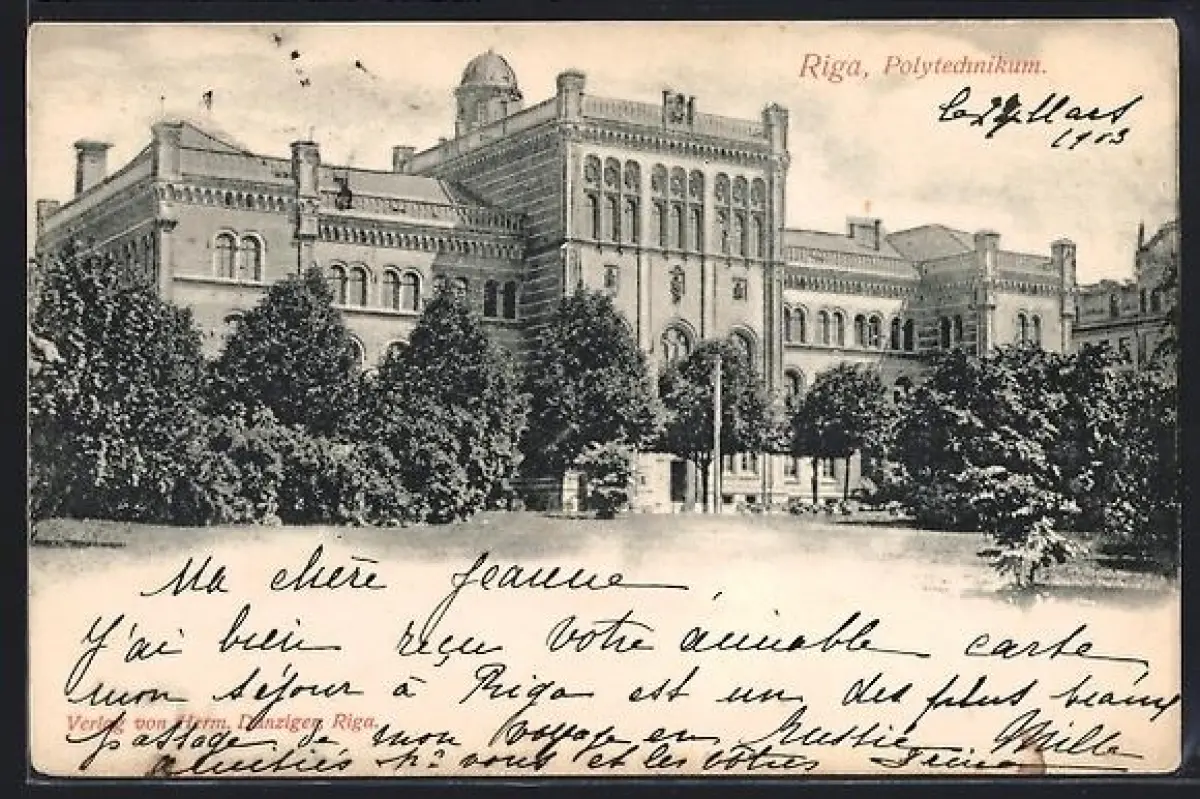 Riga, Polytechnikum.
1903
Ma chère Jeanne,
J'ai bien reçu votre aimable carte
mon séjour à Riga est un des plus beaux
Verlag von Herm. Danziger, Riga.
passage de mon voyage en Russie Mille
amitiés pr vous et les vôtres